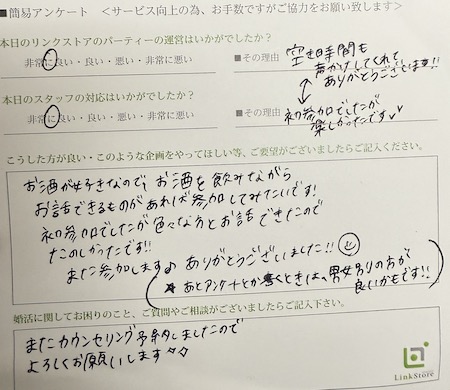 ■簡易アンケート <サービス向上の為、お手数ですがご協力をお願い致します>
本日のリンクストアのパーティーの運営はいかがでしたか?
非常に良い・良い・悪い・非常に悪い
■その理由
空き時間も
声かけしてくれて
ありがとうございます!!
本日のスタッフの対応はいかがでしたか?
非常に良い・良い・悪い・非常に悪い
■その理由
初参加でしたが
楽しかったです♪
こうした方が良い・このような企画をやってほしい等、ご要望がございましたらご記入ください。
お酒が好きなので、お酒を飲みながら
お話できるものがあれば参加してみたいです!
初参加でしたが色々な方とお話できたので
たのしかったです!!
また参加します♪ ありがとうございました!!
★あとアンケートとか書くときは、男女別りの方が
良いかもです!!
婚活に関してお困りのこと、ご質問やご相談がございましたらご記入下さい。
またカウンセリング予約しましたので
よろしくお願いします☆☆
LinkStore